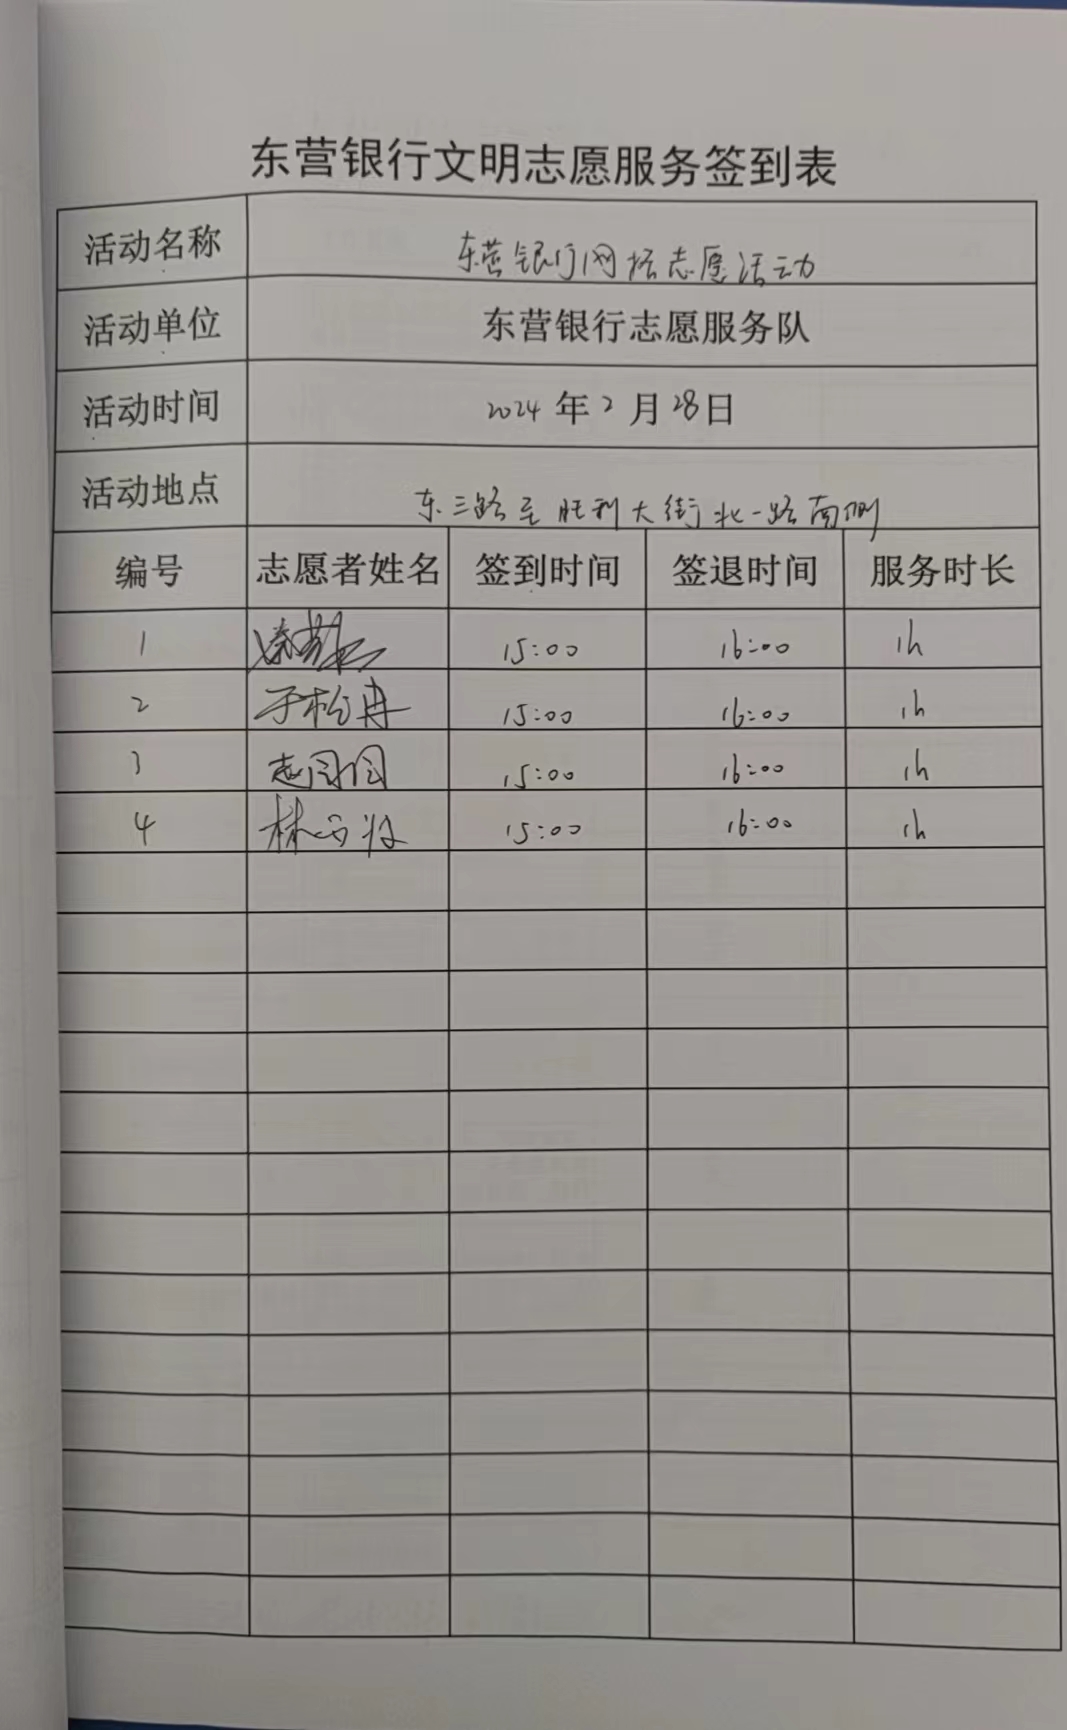 东营银行文明志愿服务签到表
活动名称 东营银行网格志愿活动
活动单位 东营银行志愿服务队
活动时间 2024年2月28日
活动地点 东三路至胜利大街北一路南侧
编号 志愿者姓名 签到时间 签退时间 服务时长
1 15:00 16:00 1h
2 于松冉 15:00 16:00 1h
3 15:00 16:00 1h
4 15:00 16:00 1h